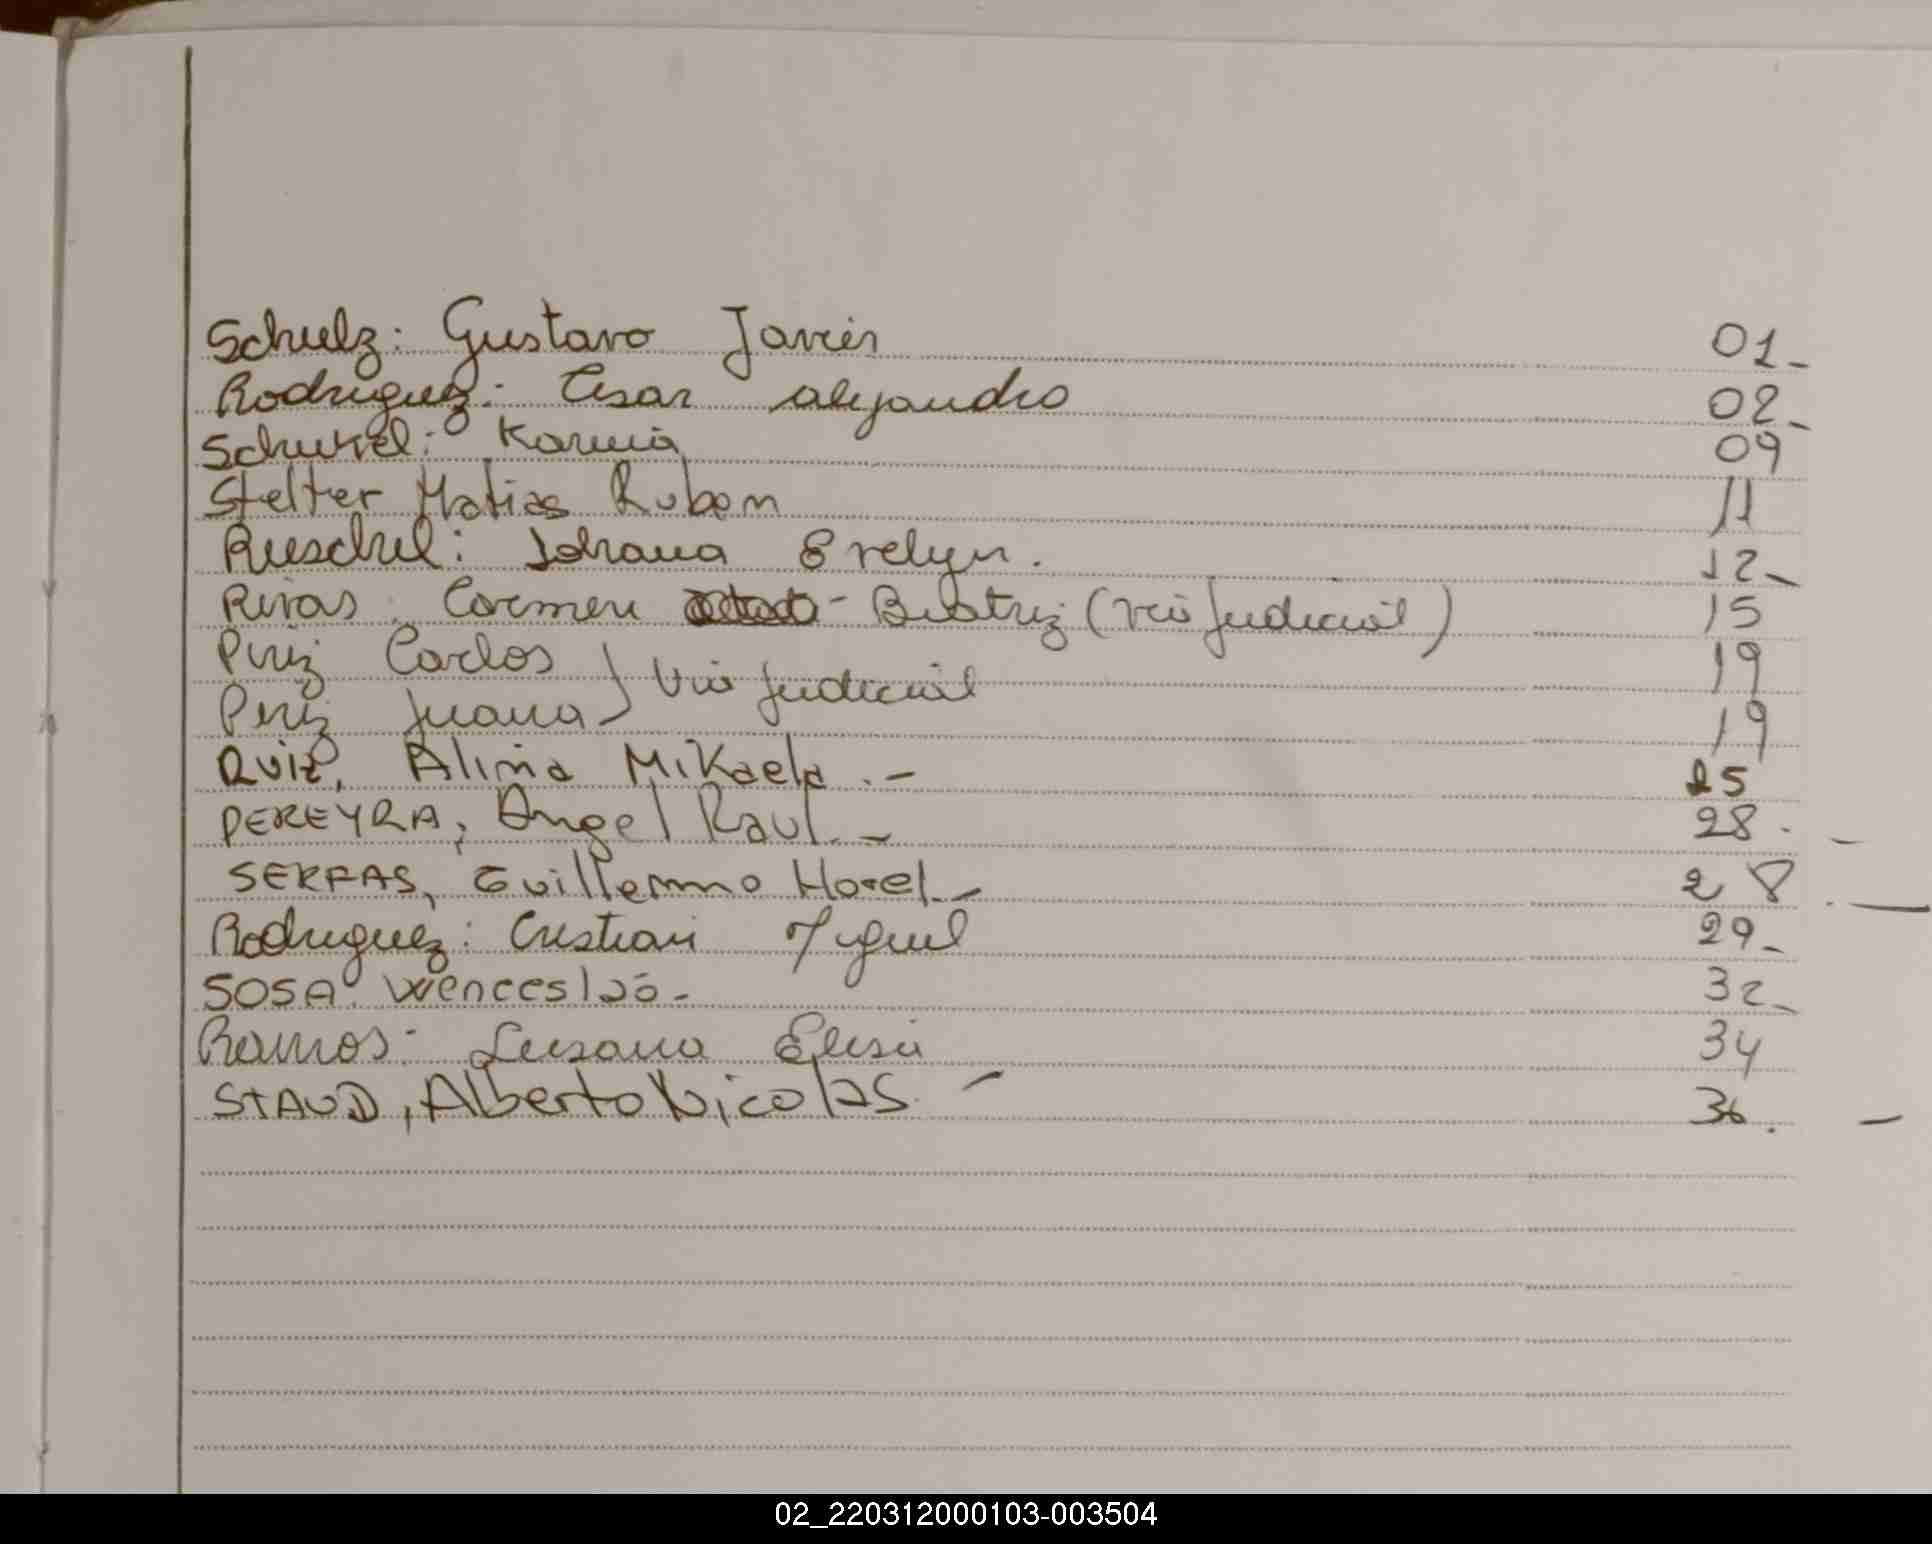 Schulz: Gustavo Javier 01-
Rodriguez: Cesar alejandro 02-
Schukel: Karina 09
Stelter Matias Ruben 11
Rieschel: Johana Evelyn. 12-
Rivas Carmen - Beatriz (vía judicial) 15
Piriz Carlos } Via judicial 19
Piriz Juana 19
Ruiz, Alina Mikaela.- 25
PEREYRA, Angel Raul.- 28.-
SERFAS, Guillermo Horel- 28.-
Rodriguez: Cristian Miguel 29-
SOSA Wenceslao- 32-
Ramos: Susana Elisa 34
STAUD, Alberto Nicolas- 36.-
02_220312000103-003504